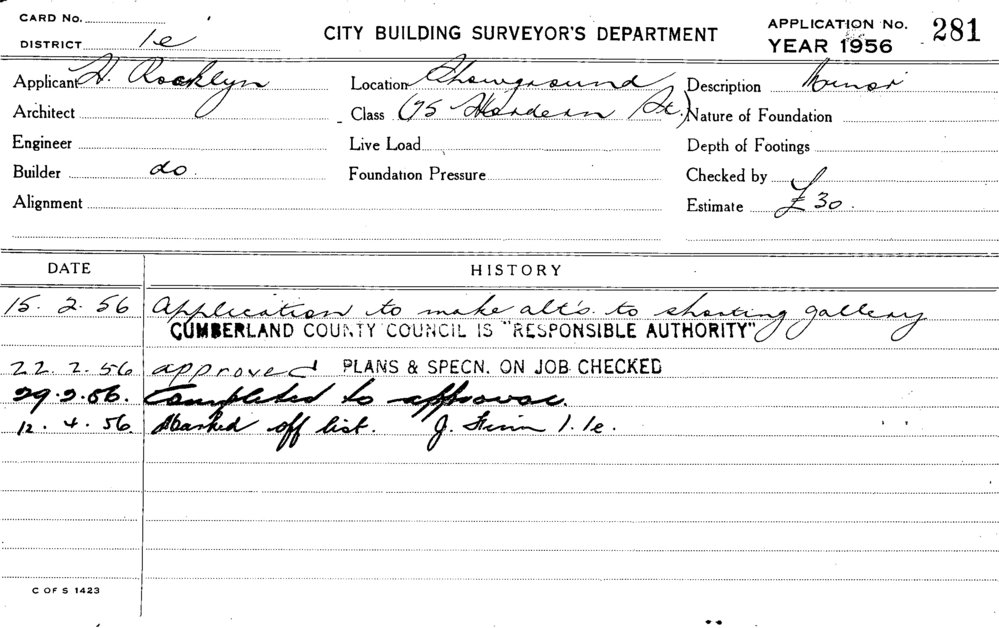 CARD No.
DISTRICT 1e
CITY BUILDING SURVEYOR'S DEPARTMENT
APPLICATION No. 281
YEAR 1956
Applicant H. Rocklyn
Location Showground
Description Minor
Architect
Class (75 Hordern St.)
Nature of Foundation
Engineer
Live Load
Depth of Footings
Builder do.
Foundation Pressure
Checked by
Alignment
Estimate £30.
DATE HISTORY
15. 2. 56 Application to make alt's. to shooting gallery
CUMBERLAND COUNTY COUNCIL IS "RESPONSIBLE AUTHORITY"
22. 2. 56 approved PLANS & SPECN. ON JOB CHECKED
29. 2. 56. Completed to approval.
12. 4. 56. Marked off list. J. 1. 1e.
C OF S 1423